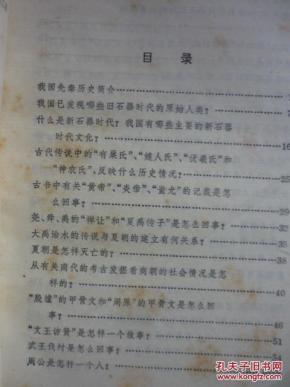 目录
我国先秦历史简介
我国已发现哪些旧石器时代的原始人类？
什么是新石器时代？我国有哪些主要的新石器
时代文化？ 16
古代传说中的“有巢氏”、“燧人氏”、“伏羲氏”和
“神农氏”，反映什么历史情况？ 25
古书中有关“黄帝”、“炎帝”、“蚩尤”的记载是怎
么回事？ 29
尧、舜、禹的“禅让”和“夏禹传子”是怎么回事？ 32
大禹治水的传说与夏朝的建立有何关系？ 35
夏朝是怎样灭亡的？ 38
从有关商代的考古发掘看商朝的社会情况是怎
样的？ 40
“殷墟”的甲骨文和“周原”的甲骨文是怎么回
事？ 46
“文王访贤”是怎样一个故事？ 51
武王伐纣是怎么回事？ 54
周公是怎样一个人？
孔夫子旧书网